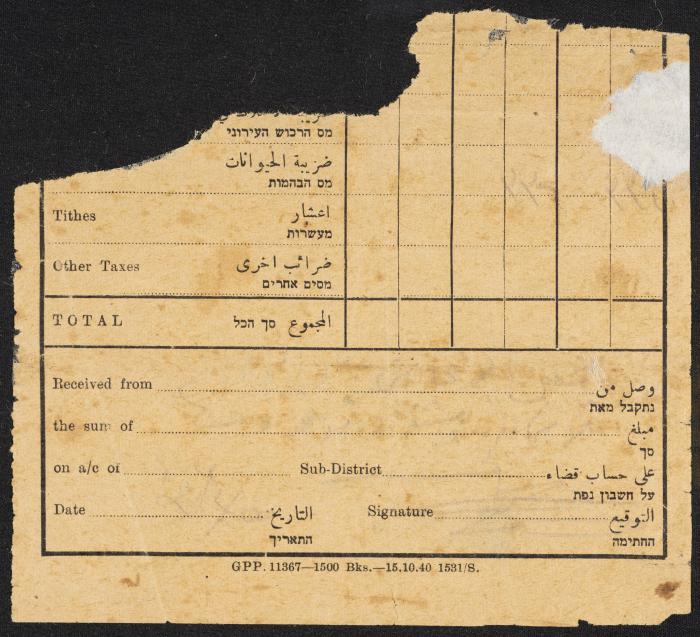 מס הרכוש העירוני
ضريبة الحيوانات
מס הבהמות
Tithes اعشار
מעשרות
Other Taxes ضرائب اخرى
מסים אחרים
TOTAL המجموع סך הכל
Received from وصل من
נתקבל מאת
the sum of مبلغ
סך
on a/c of Sub-District على حساب قضاء
על חשבון נפת
Date التاريخ Signature التوقيع
התאריך החתימה
GPP. 11367—1500 Bks.—15.10.40 1531/S.